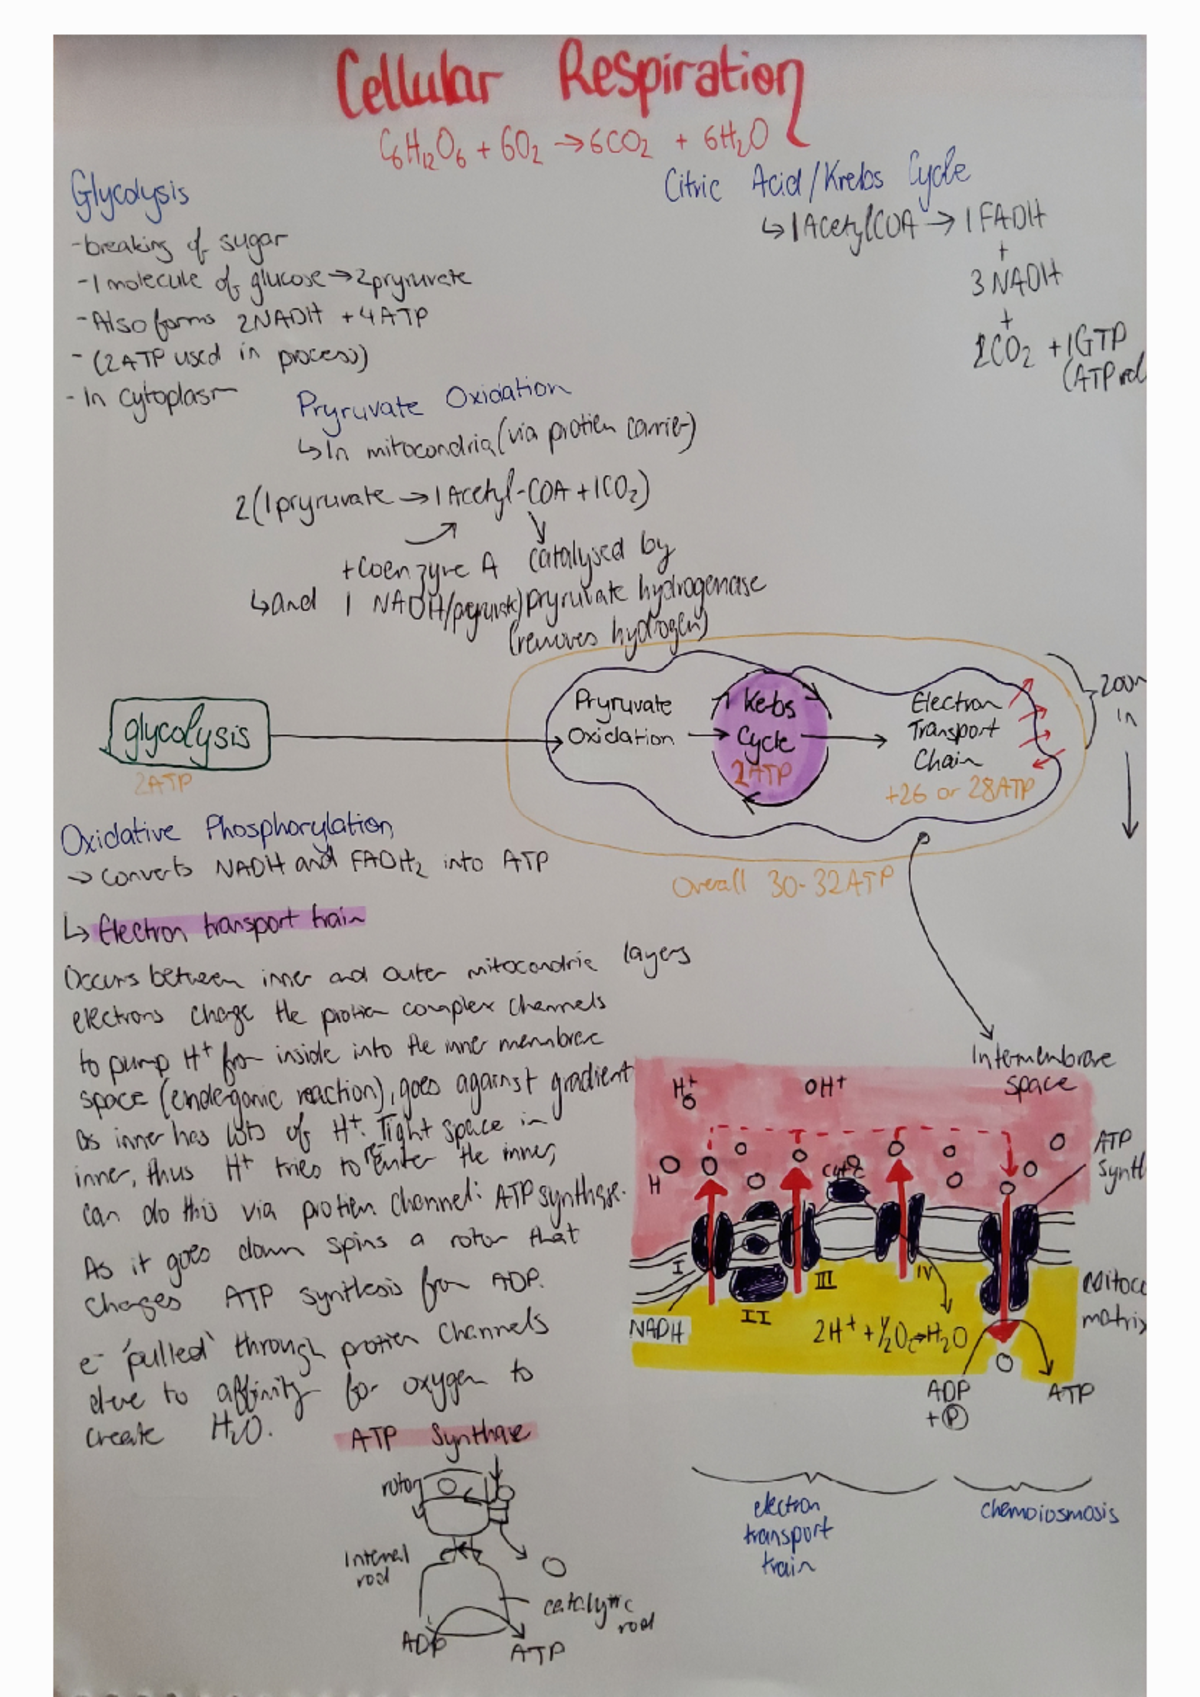 Cellular Respiration
C6H12O6 + 6O2 → 6CO2 + 6H2O
Glycolysis
-breaking of sugar
-1 molecule of glucose → 2pryruvate
-Also forms 2NADH + 4ATP
- (2ATP used in process)
- In cytoplasm
Citric Acid/Krebs Cycle
↳ 1AcetylCOA → 1FADH
+
3 NADH
+
2CO2 + 1GTP
(ATP
Pryruvate Oxidation
↳ In mitocondria (via protien carrier)
2(1pryruvate → 1Acetyl-COA + 1CO2)
+Coenzyme A catalysed by
↳ and 1 NADH/ pryruvate hydrogenase
(removes hydrogen)
glycolysis
2ATP
Pryruvate
Oxidation
Kebs
Cycle
2ATP
Electron
Transport
Chain
+26 or 28ATP
in
Overall 30-32ATP
Oxidative Phosphorylation
→ converts NADH and FADH2 into ATP
↳ Electron transport train
Occurs between inner and outer mitocondria layers
electrons charge the protien complex channels
to pump H+ from inside into the inner membrane
space (endergonic reaction), goes against gradient
as inner has lots of H+. Tight space in
inner, thus H+ tries to "enter the inner,
can do this via protien channel: ATP synthase.
As it goes down spins a rotor that
charges ATP synthesis from ADP.
e- 'pulled' through protien channels
due to affinity for oxygen to
create H2O.
Intermembrane
space
H+
OH+
H
Cyt C
ATP
Synth
I
II
III
IV
NADH
2H+ + ½O2 → H2O
Mitoc
matrix
ADP
+ P
ATP
electron
transport
train
chemoiosmosis
ATP Synthase
rotor
Internal
rod
catalytic
rod
ADP
ATP